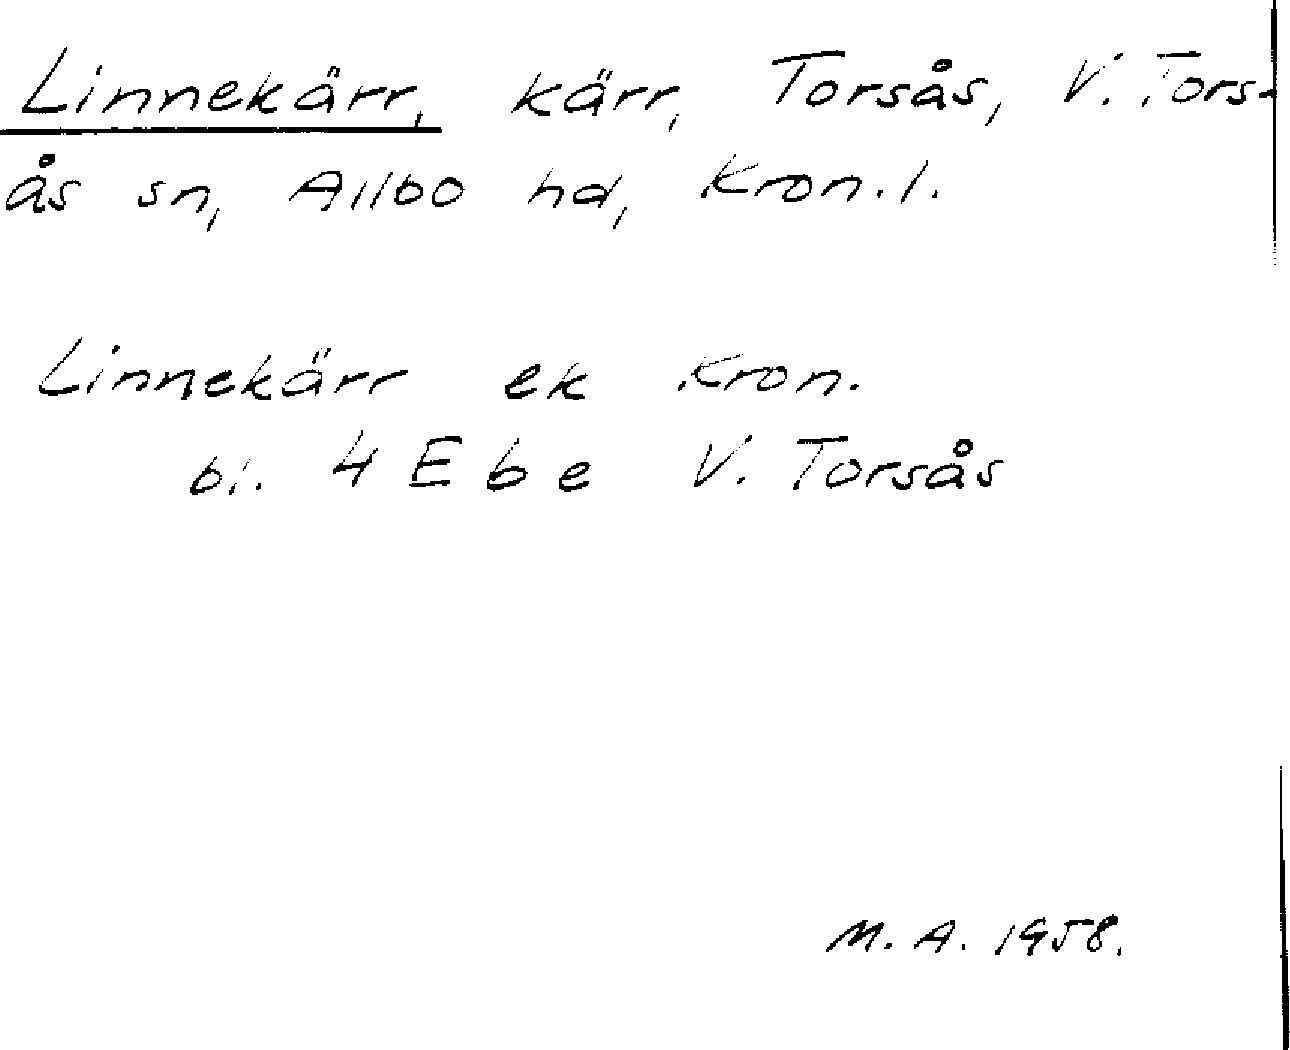 Linnekärr, kärr, Torsås, V. Tors-
ås sn, Allbo hd, Kron.l.
Linnekärr ek Kron.
bl. 4 E b e V. Torsås
M. A. 1958.